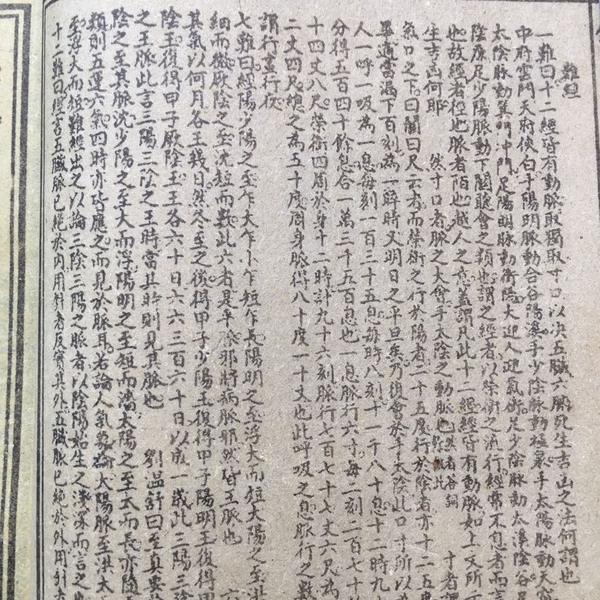 難經
一難曰十二經皆有動脈取獨取寸口以決五臟六腑死生吉凶之法何謂也
中府雲門天府俠白手陽明脈動合谷陽溪手少陰脈動極泉手太陽脈動天窓
太陰脈動箕門冲門足陽明脈動衝陽大迎人迎氣衝足少陰脈動太溪陰谷足
陰廉足少陽脈動下關聽會之類也謂之經者以榮衛之流行經常不息者而言
也故經者徑也脈者陌也越人之意蓋謂凡此十二經經皆有動脈如上文所
生吉凶何耶 然寸口者脈之大會手太陰之動脈也 然者答詞 十者謂
氣口之下曰關曰尺云者而榮衛之行於陽者二十五度行於陰者亦二十五度
畢適當漏下百刻為一晬時又明日之平旦矣乃復會於手太陰此口寸所以為
人一呼一吸為一息每刻一百三十五息每時八刻十一千八十息十二時九十
分得五百四十餘息合一萬三千五百息也一息脈行六寸每一刻二百七十
十四丈八尺榮衛四周於身十二時計九十六刻脈行七百七十七丈六尺為
二丈四尺總之為五十度周身脈得八十度一十丈也此呼吸之息脈行之數
謂行晝行夜
七難曰經陽少陽之至乍大乍小乍短乍長陽明之至浮大而短太陽之至洪
細而微厥陰之至沈短而數此六者是平脈邪將病脈耶然皆王脈也
其氣以何月各王幾日然冬至之後得甲子少陽王復得甲子陽明王復得甲
陰王復得甲子厥陰王王各六十日六六三百六十日以成一歲此三陽三陰
之王脈此言三陽三陰之王時當其時則見其脈也 劉溫舒曰至真要
陰之至其脈沈少陽之至大而浮陽明之至短而濇太陽之至大而長亦隨
類則五運六氣四時亦皆應之而見於脈耳若論人氣 太陽脈至洪大
至浮大而短難經出之以論三陰三陽之脈者以陰陽始生之淺深而言之
十二難曰經言五臟脈已絕於內用針者反實其外五臟脈已絕於外用針